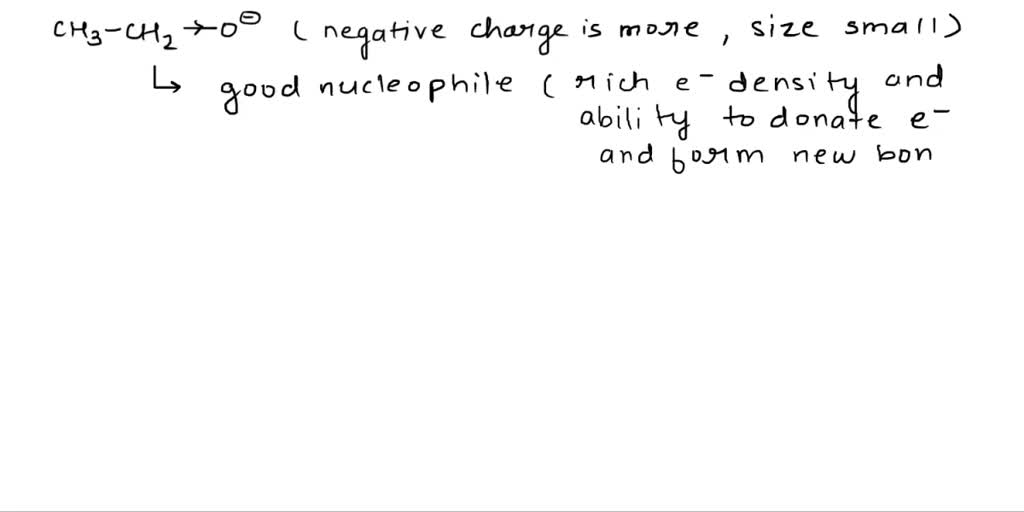 CH₃-CH₂→O⊖ ( negative charge is more , size small)
↳ good nucleophile ( rich e⁻ density and
ability to donate e⁻
and form new bon